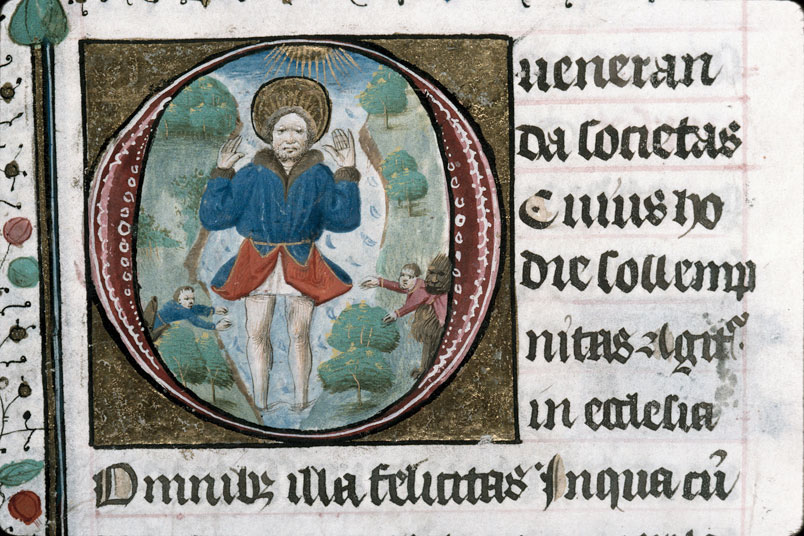 O ueneran
da societas
Cuius ho
die sollemp
nitas agit᷑
in ecclesia
Omnibꝫ illa felicitas Inqua cū